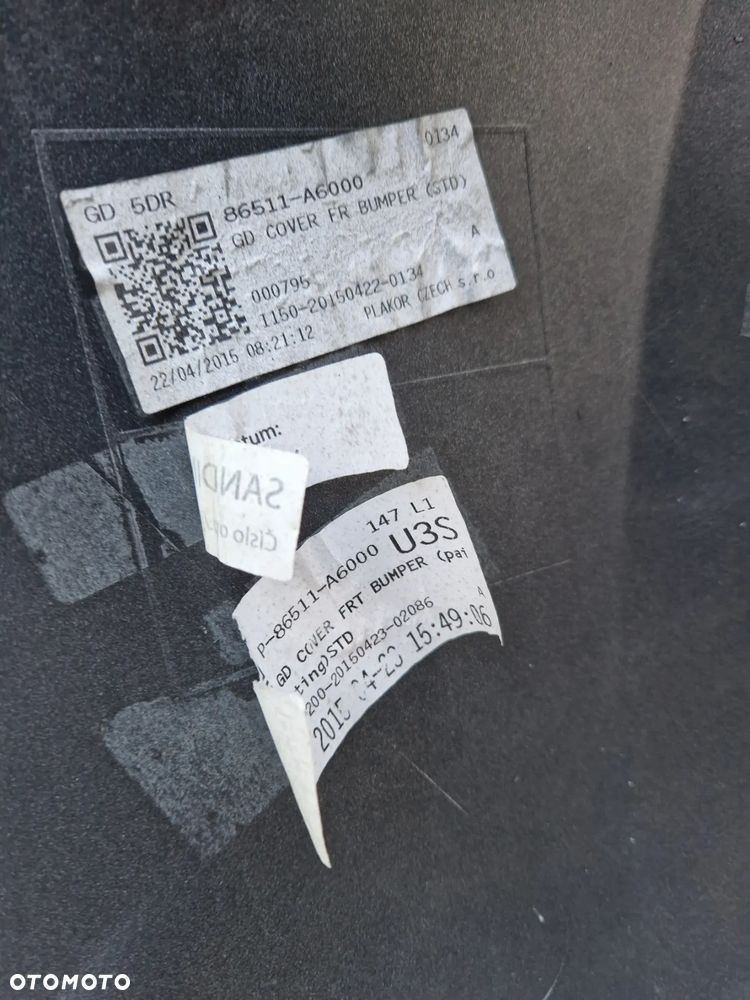 0134
GD 5DR
86511-A6000
GD COVER FR BUMPER (STD)
A
000795
1150-20150422-0134
22/04/2015 08:21:12
PLAKOR CZECH s.r.o
tum:
SAND
Číslo op
147 L1
P-86511-A6000 U3S
GD COVER FRT BUMPER (pai
ting)STD
A
200-20150423-02086
2015 04-23 15:49:06
OTOMOTO